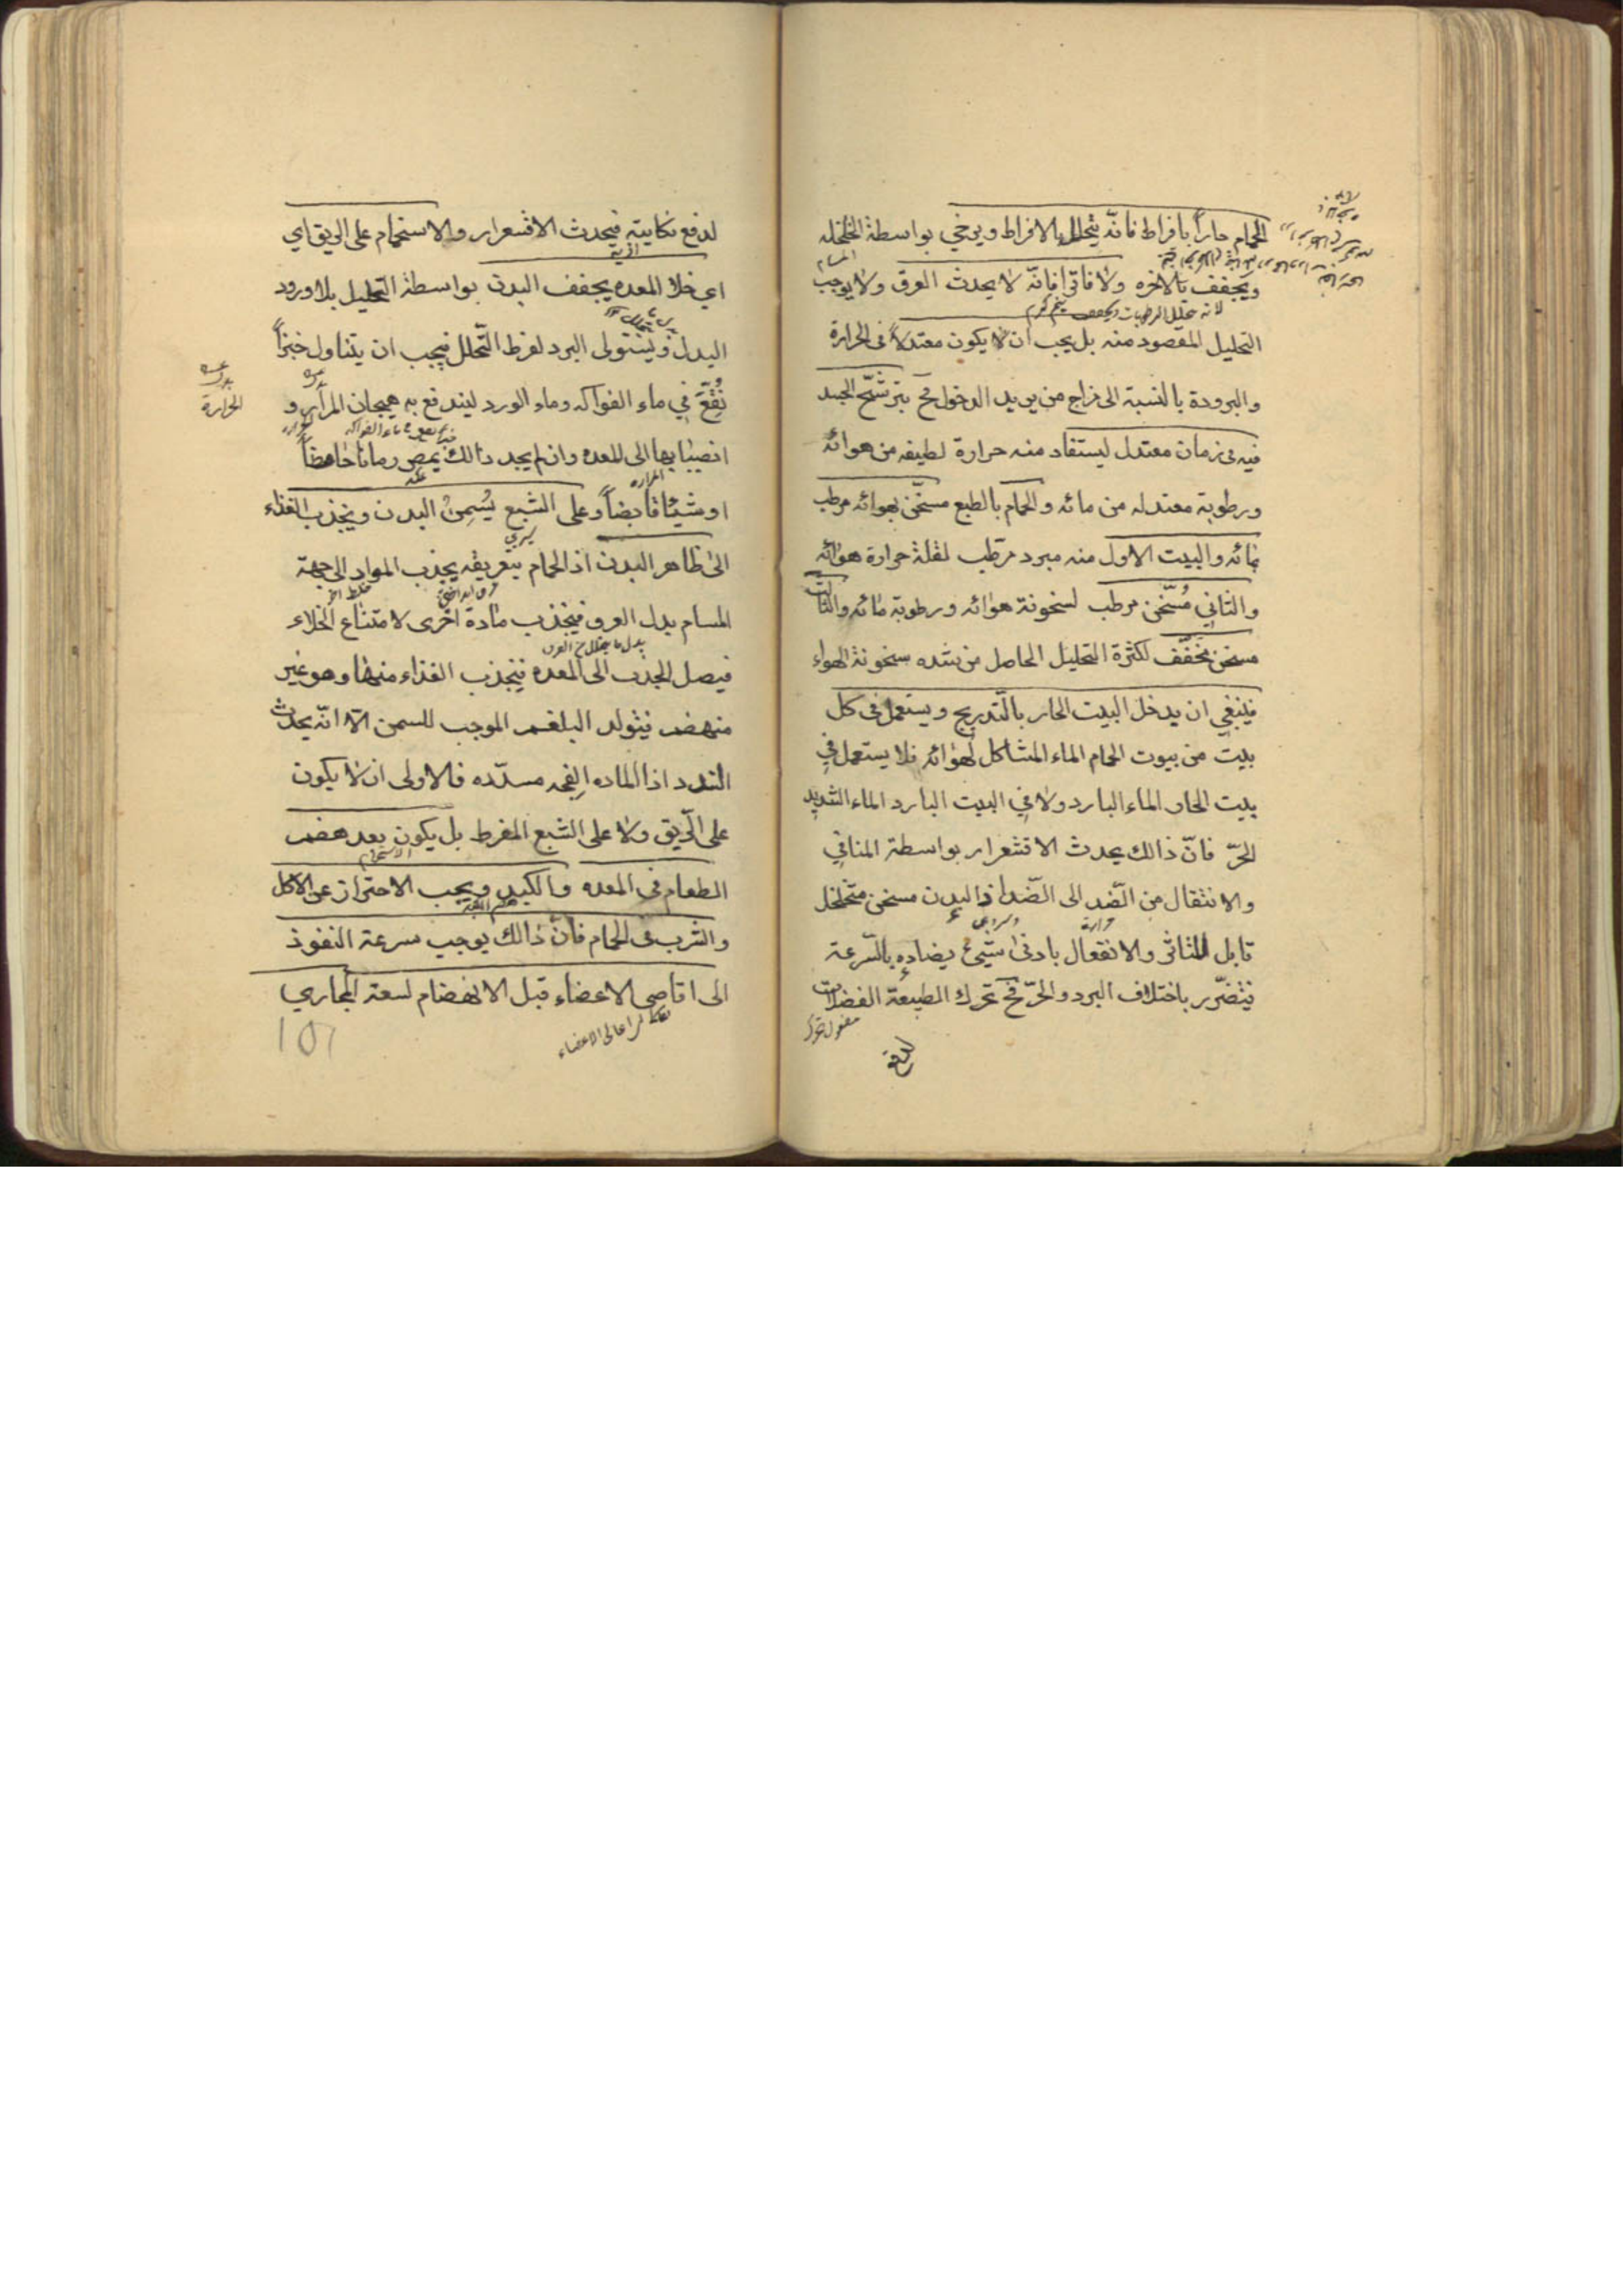 الحمام حاراً بافراط فانّه يتحلل بالافراط ويرخي بواسطة الخلخله
المسام
ويجفف بالاخره ولا فاترا فانّه لا يحدث العرق ولا يوجب
لانه تحلل الرطوبات ويجفف
التحليل المقصود منه بل يجب ان يكون معتدلاً في الحرارة
والبرودة بالنسبة الى مزاج من يريد الدخول فح يترشّح الجسد
فيه في زمان معتدل ليستفاد منه حرارة لطيفه من هوائه
ورطوبة معتدله من مائه والحمام بالطبع مسخّن بهوائه مرطب
بمائه والبيت الاول منه مبرد مرطب لقلة حرارة هوائه
والثاني مُسخّن مرطب لسخونة هوائه ورطوبة مائه والثالث
مسخن مجفّف لكثرة التحليل الحاصل من شده سخونة الهواء
فينبغي ان يدخل البيت الحار بالتّدريج ويستعمل في كل
بيت من بيوت الحمام الماء المشاكل لهوائه فلا يستعمل في
بيت الحار الماء البارد ولا في البيت البارد الماء الشديد
الحرّ فانّ ذالك يحدث الاقشعرار بواسطة المنافي
والانتقال من الضّد الى الضّد اذ البدن مسخن متخلخل
قابل للتاثر والانفعال بادنى شيئ يضاده بالسّرعة
فيتضرّر باختلاف البرد والحرّ فح تحرك الطبيعة الفضلات
مفعول تحرك
لدفع
لدفع نكايته فيحدث الاقشعرار والاستحمام على الريق اي
اذيته
اي خلا المعده يجفف البدن بواسطة التحليل بلا ورود
البدل ويستولى البرد لفرط التّحلل فيجب ان يتناول خبزاً
نُقِّعَ في ماء الفواكه وماء الورد ليندفع به هيجان المرار و
الحرارة
انصبابها الى المعده وان لم يجد ذالك يمص رمانا حامضاً
المراره
او شيئا قابضاً وعلى الشبع يُسْمِنُ البدن ويجذب الغذاء
الى ظاهر البدن اذ الحمام بتعريقه يجذب المواد الى جهة
خلط اخر
المسام بدل العرق فينجذب مادة اخرى لامتناع الخلاء
بدل ما يتحلل من العرق
فيصل الجذب الى المعده فينجذب الغذاء منها وهو غير
منهضم فيتولد البلغم الموجب للسمن الّا انّه يحدث
السّدد اذ الماده الفجه مسدّده فالاولى ان لا يكون
على الرّيق ولا على الشبع المفرط بل يكون بعد هضم
الاستحمام
الطعام في المعده والكبد ويجب الاحتراز عن الاكل
والشرب في الحمام فانّ ذالك يوجب سرعة النفوذ
الى اقاصي الاعضاء قبل الانهضام لسعة المجاري